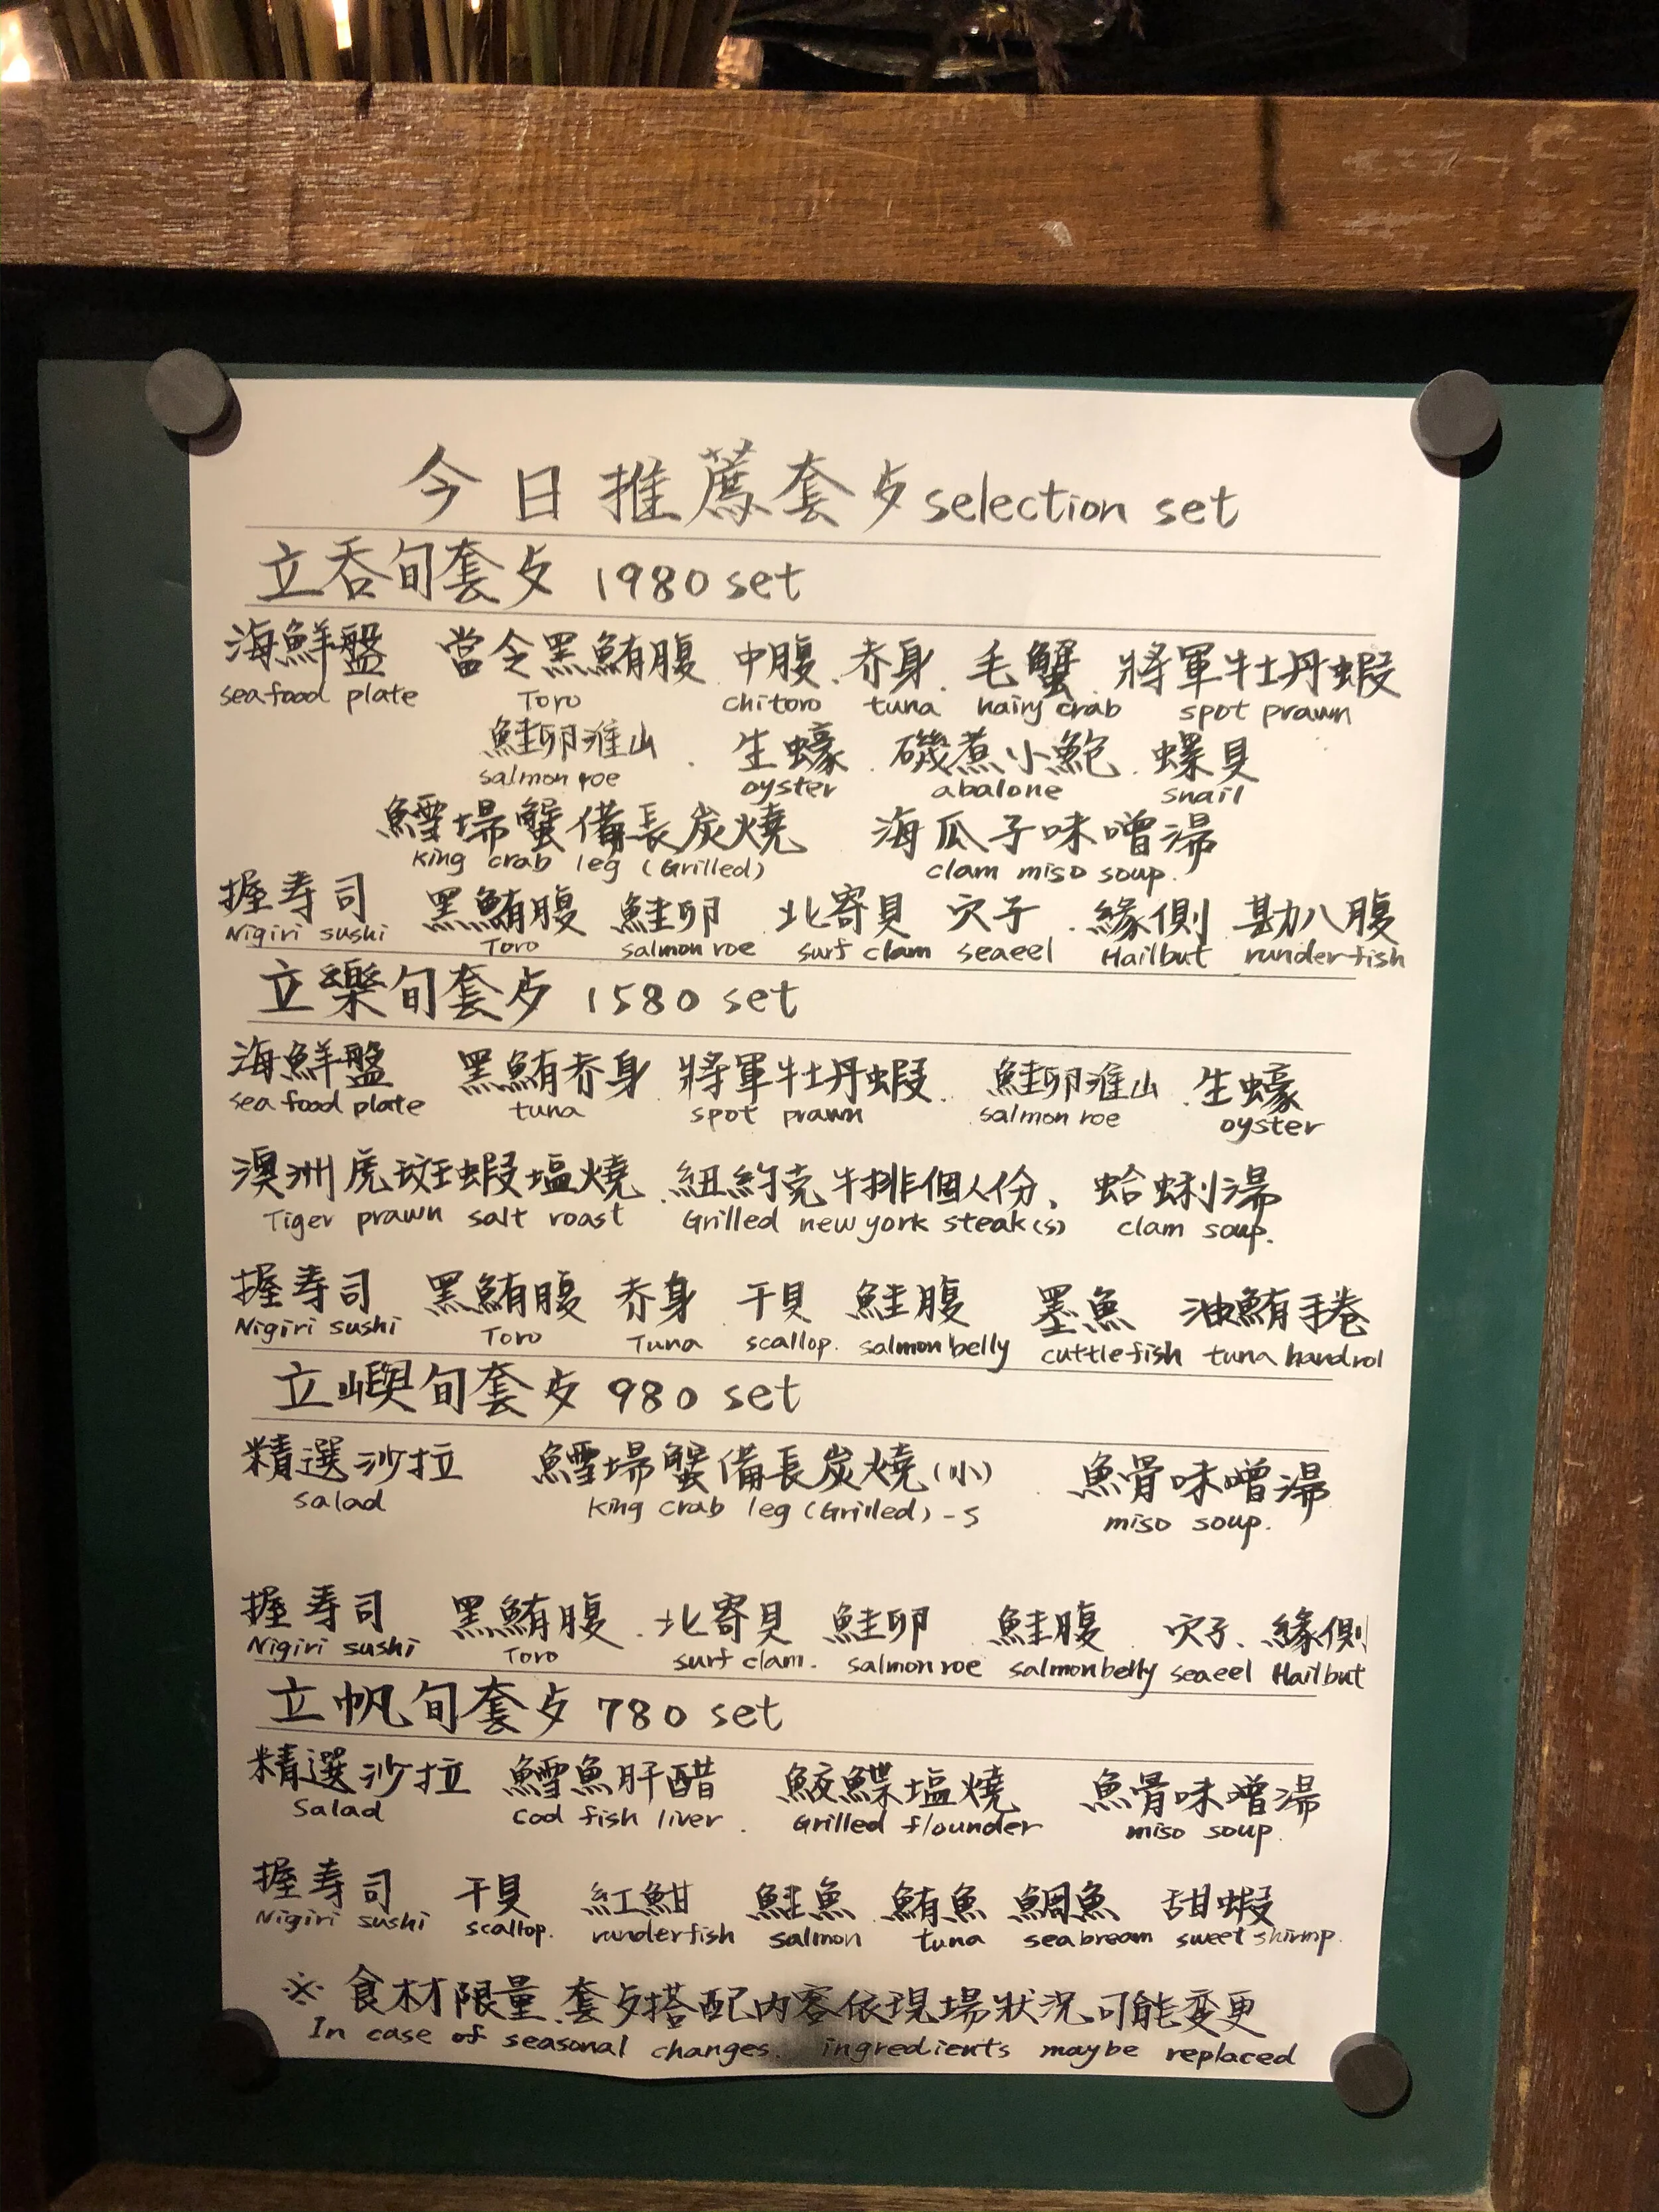 今日推薦套歺 selection set
立吞旬套歺 1980 set
海鮮盤 當令黑鮪腹 中腹 赤身 毛蟹 將軍牡丹蝦
seafood plate Toro chitoro tuna hairy crab spot prawn
鮭卵淮山 生蠔 磯煮小鮑 螺貝
salmon roe oyster abalone snail
鱈場蟹備長炭燒 海瓜子味噌湯
king crab leg (Grilled) clam miso soup.
握寿司 黑鮪腹 鮭卵 北寄貝 穴子 緣側 勘八腹
Nigiri sushi Toro salmon roe surf clam seaeel Hailbut runderfish
立樂旬套歺 1580 set
海鮮盤 黑鮪赤身 將軍牡丹蝦 鮭卵淮山 生蠔
seafood plate tuna spot prawn salmon roe oyster
澳洲虎斑蝦塩燒 紐約克牛排個人份、 蛤蜊湯
Tiger prawn salt roast Grilled new york steak(s) clam soup.
握寿司 黑鮪腹 赤身 干貝 鮭腹 墨魚 油鮪手捲
Nigiri sushi Toro Tuna scallop. salmon belly cuttlefish tuna handrol
立嶼旬套歺 980 set
精選沙拉 鱈場蟹備長炭燒(小) 魚骨味噌湯
salad king crab leg (Grilled) -S miso soup.
握寿司 黑鮪腹 北寄貝 鮭卵 鮭腹 穴子、緣側
Nigiri sushi Toro surf clam. salmon roe salmon belly seaeel Hailbut
立帆旬套歺 780 set
精選沙拉 鱈魚肝醋 鮫鰈塩燒 魚骨味噌湯
Salad cod fish liver. Grilled flounder miso soup.
握寿司 干貝 紅魽 鮭魚 鮪魚 鯛魚 甜蝦
Nigiri sushi scallop. runderfish salmon tuna seabream sweet shirmp.
※ 食材限量 套歺搭配內容依現場狀況可能变更
In case of seasonal changes. ingredients maybe replaced